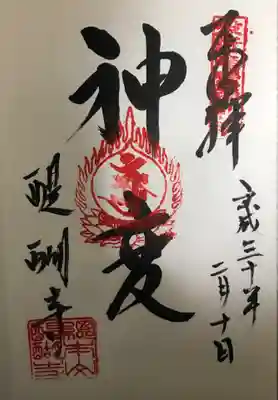 奉拝
平成三十年
二月十日
神変
醍醐寺